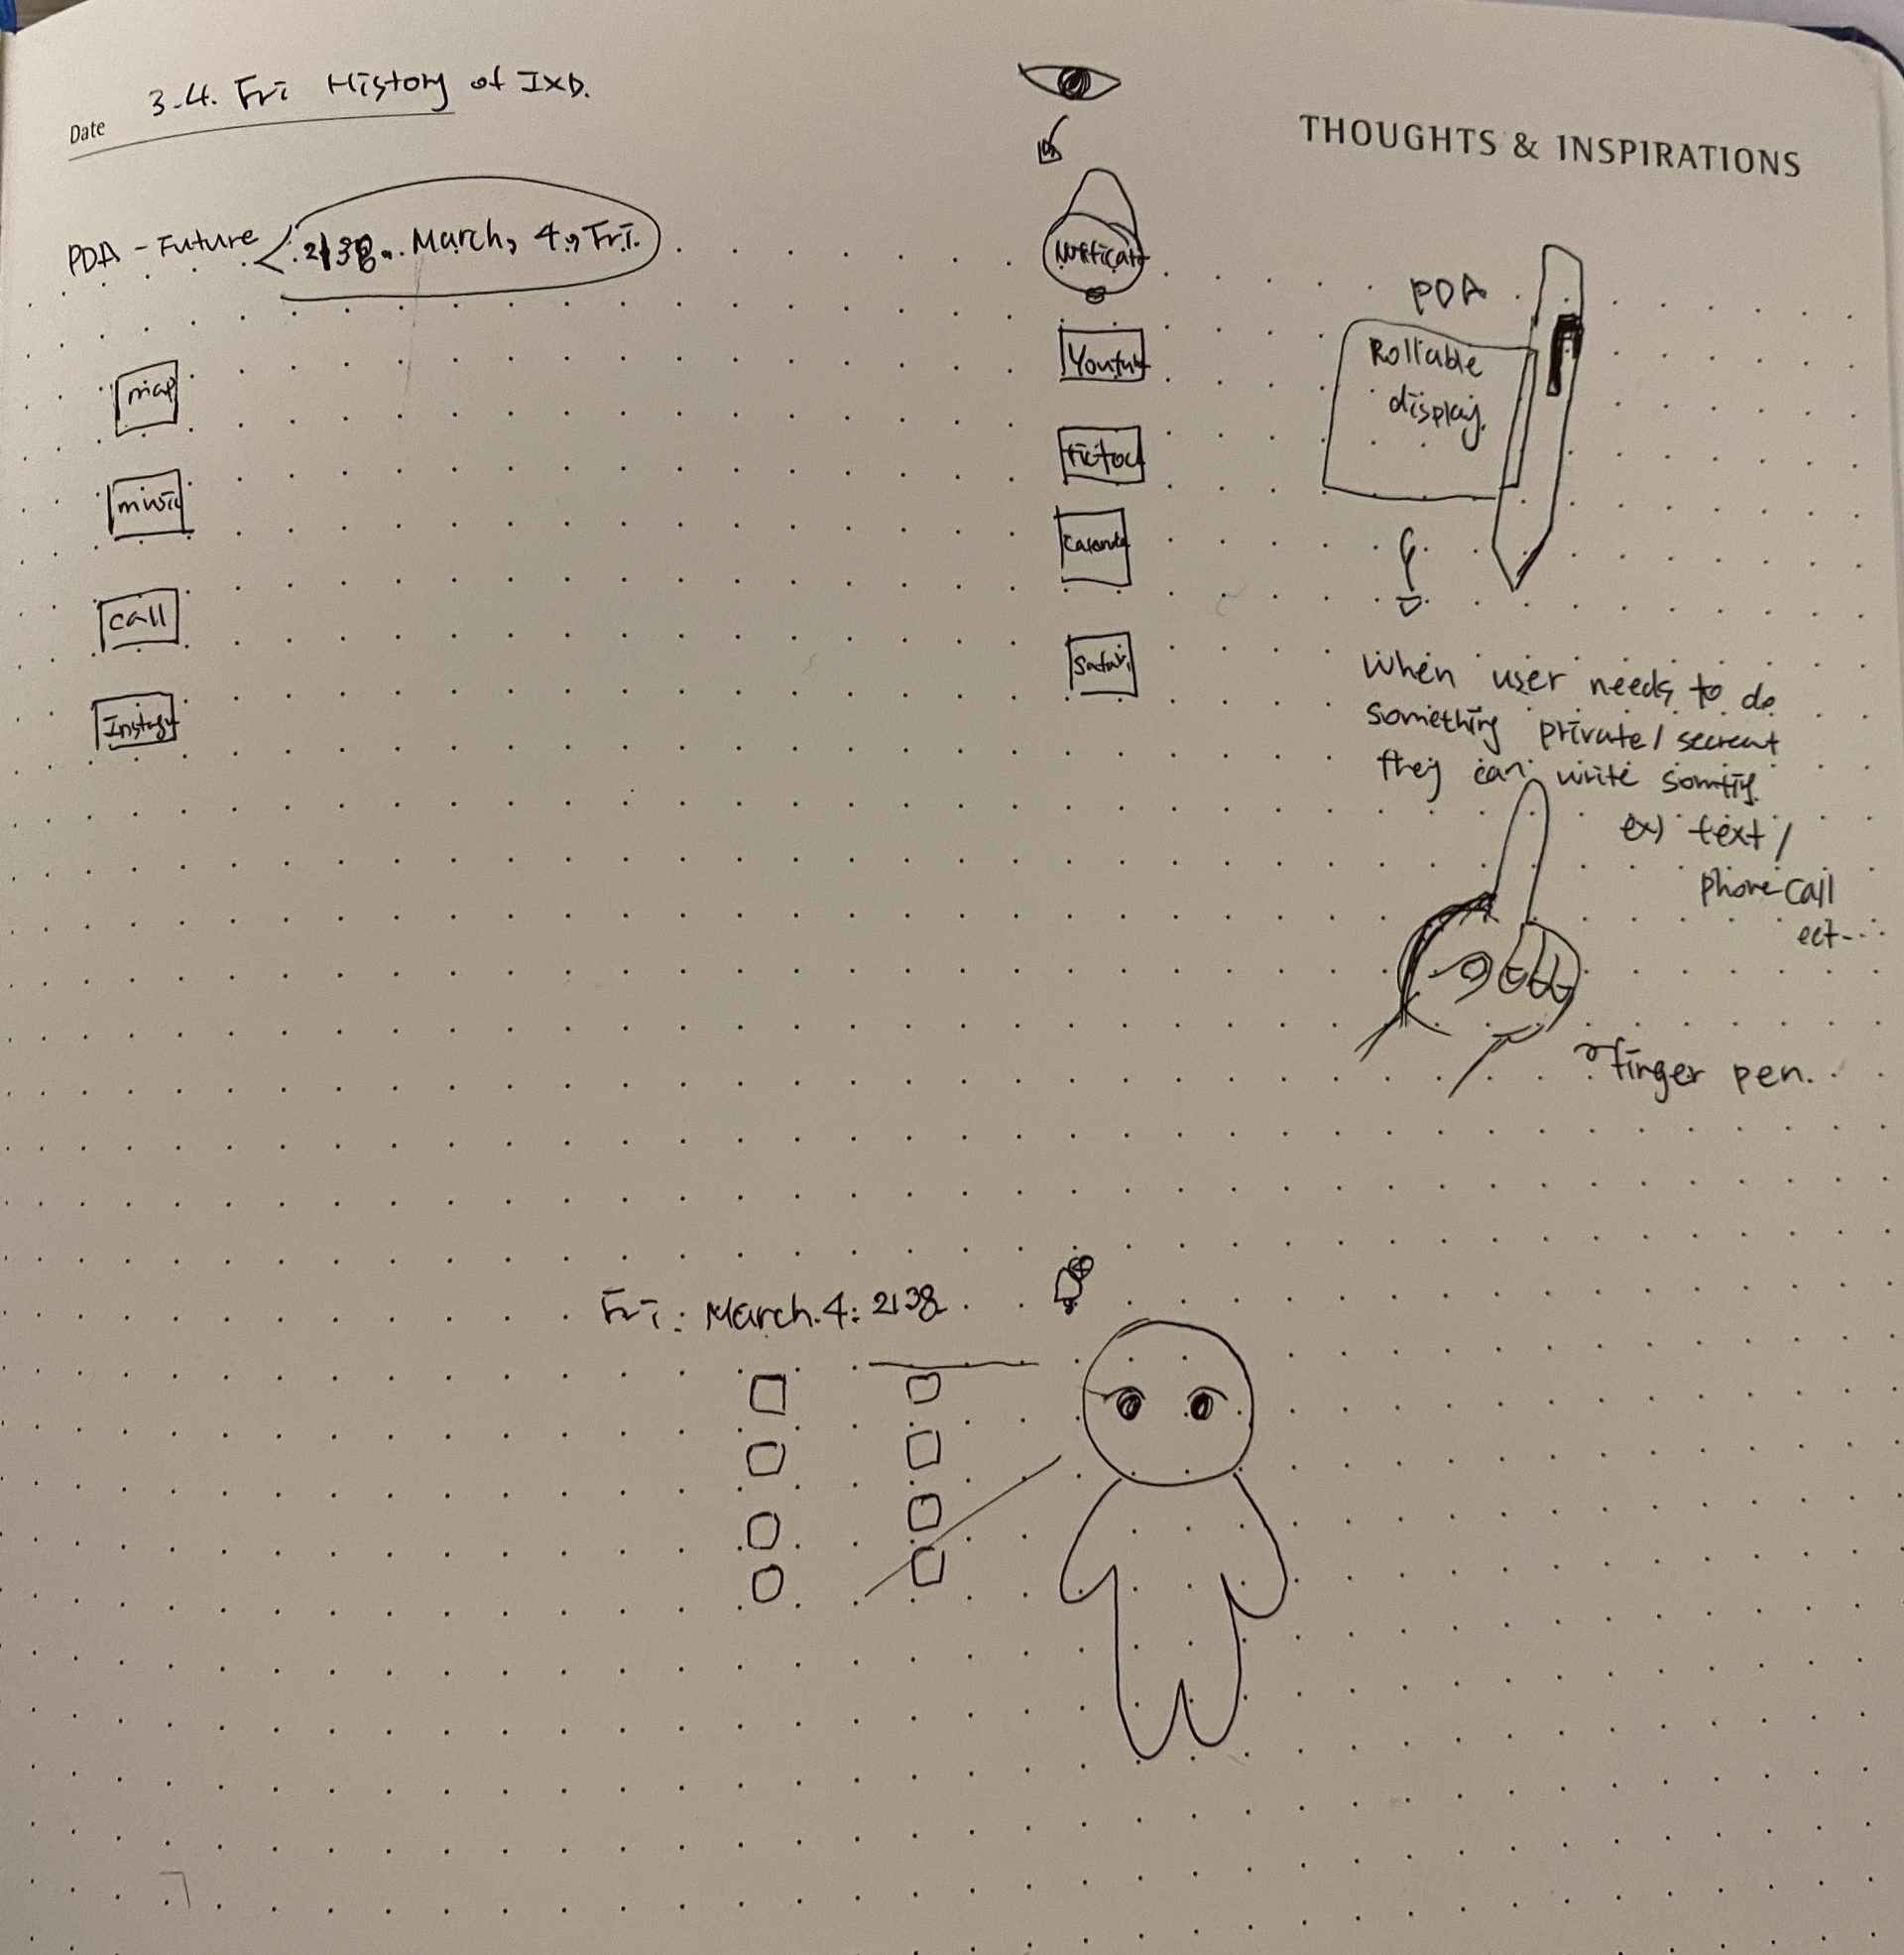 Date 3.4. Fri History of IXD.
THOUGHTS & INSPIRATIONS
PDA - Future 2138. March, 4, Fri.
map
music
call
Youtube
Calenda
Safari
PDA
Rollable
display.
When user needs to do
something private / secreat
they can write
ex) text /
phone call
ect...
finger pen.
Fri: March. 4: 2138